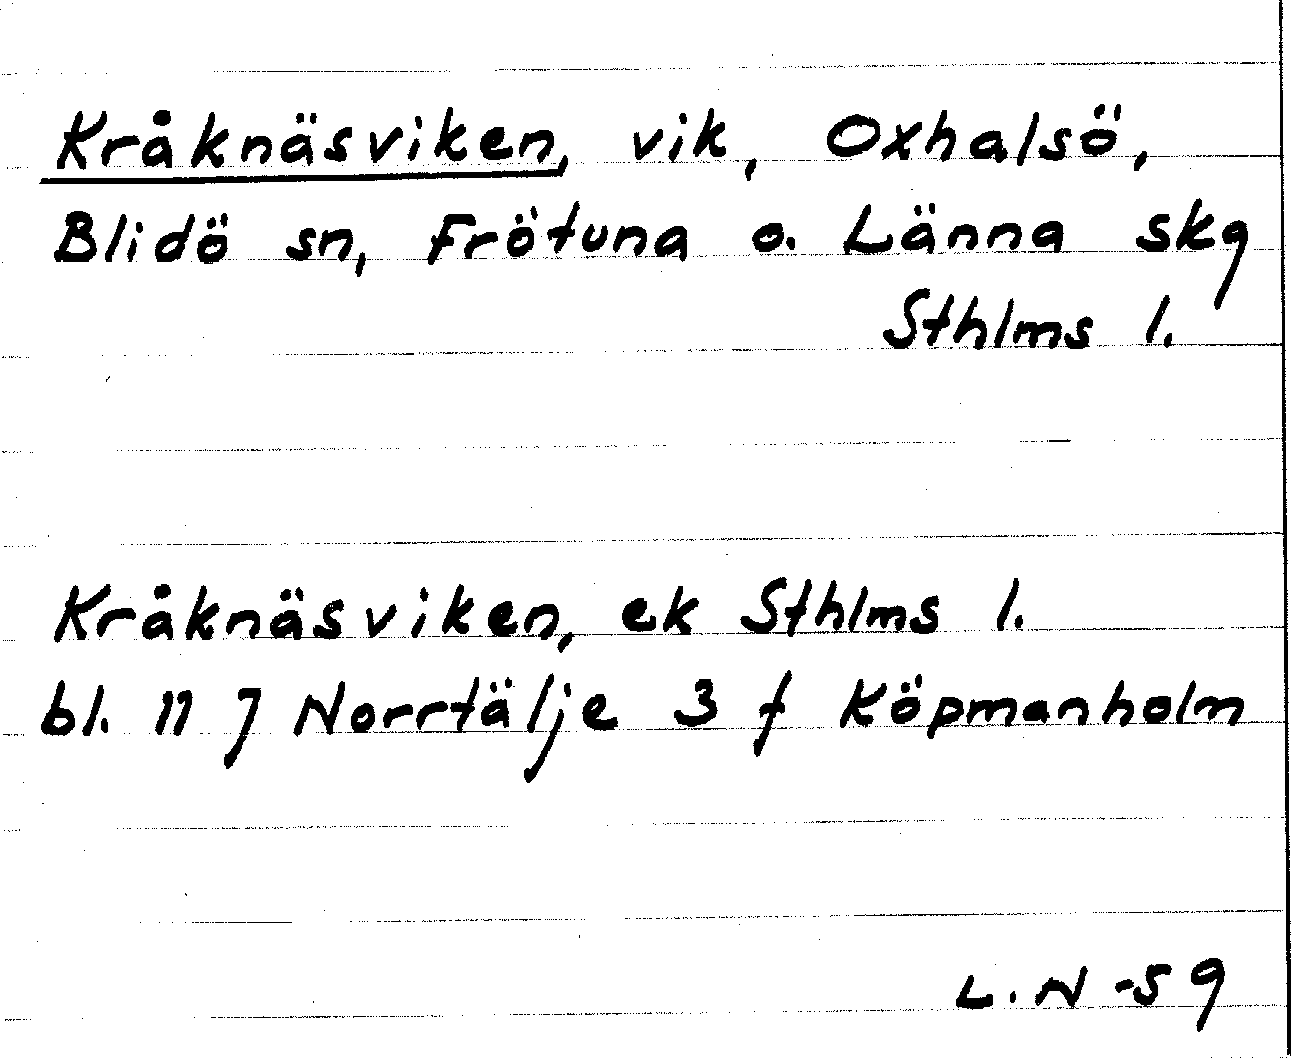 Kråknäsviken, vik, Oxhalsö,
Blidö sn, Frötuna o. Länna skg
Sthlms l.
Kråknäsviken, ek Sthlms l.
bl. 11 J Norrtälje 3 f Köpmanholm
L.N -59